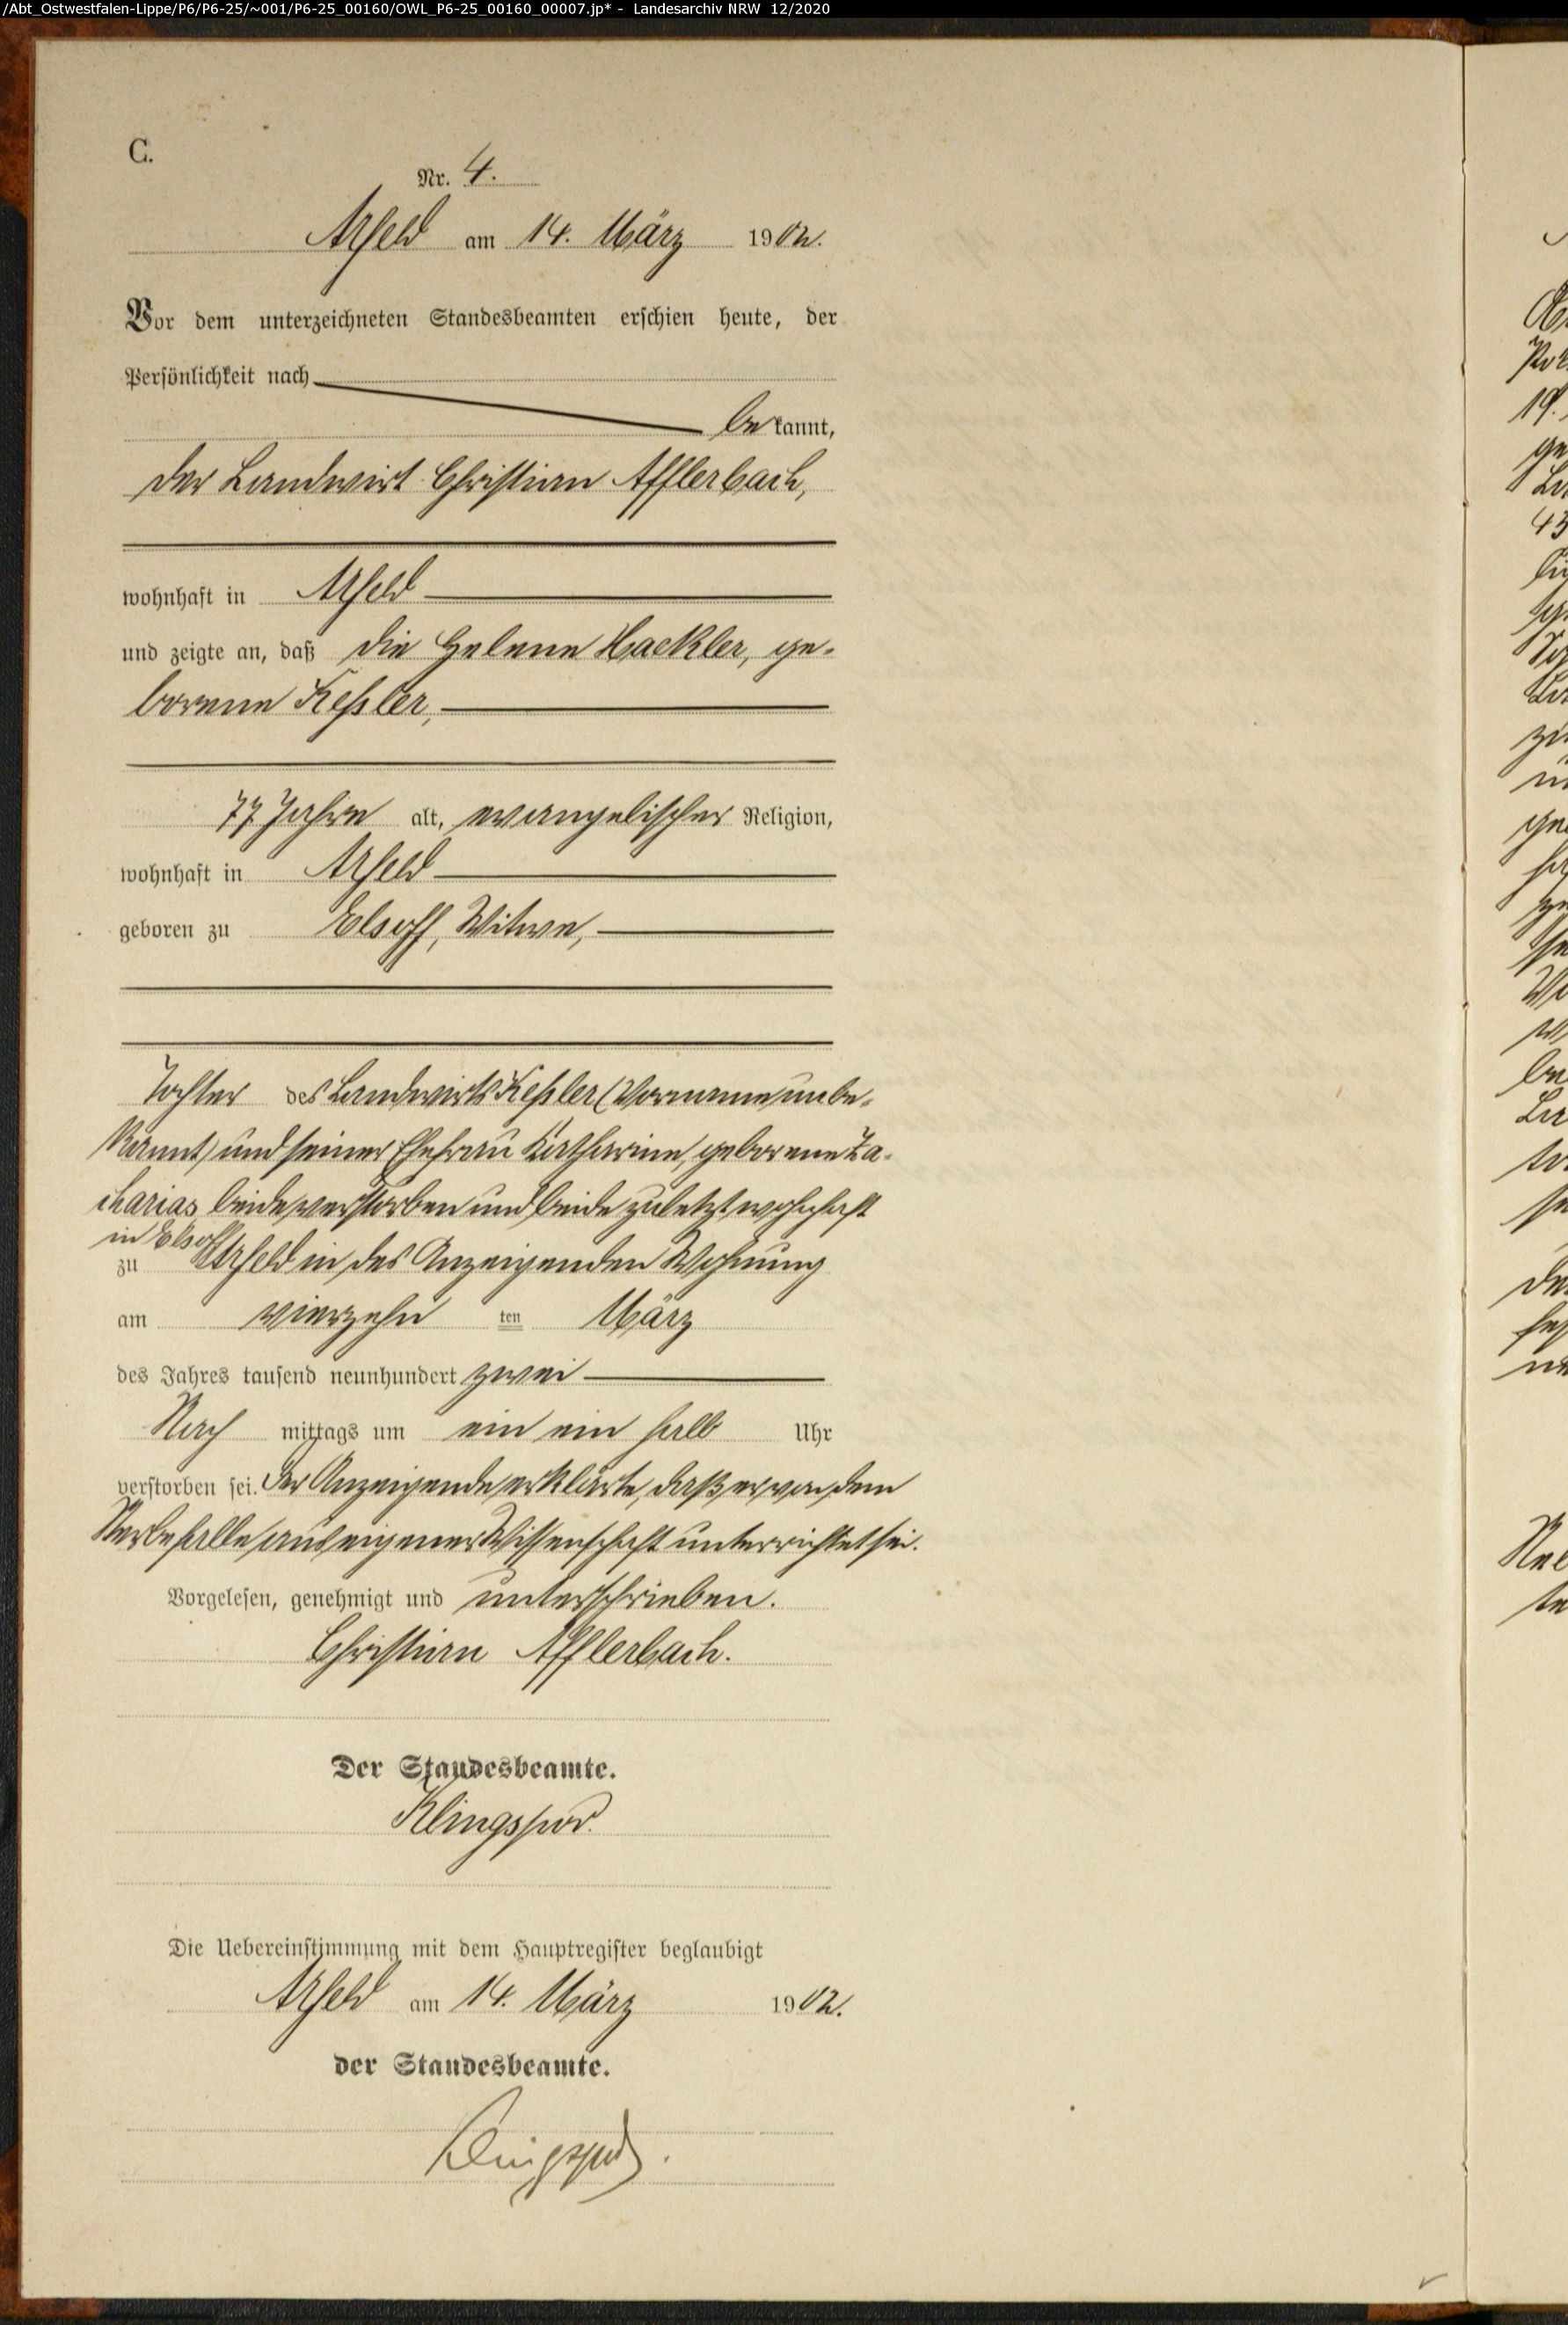 /Abt_Ostwestfalen-Lippe/P6/P6-25/~001/P6-25_00160/OWL_P6-25_00160_00007.jp* - Landesarchiv NRW 12/2020
C.
Nr. 4.
Arfeld am 14. März 1902.
Vor dem unterzeichneten Standesbeamten erschien heute, der
Persönlichkeit nach
bekannt,
der Landwirt Christian Afflerbach,
wohnhaft in Arfeld
und zeigte an, daß die Helene Hackler, ge-
borene Keßler,
77 Jahre alt, evangelischer Religion,
wohnhaft in Arfeld
geboren zu Elsoff, Witwe,
Tochter des Landwirts Keßler (Vorname unbe-
kannt) und seiner Ehefrau Katharine, geborene Za-
charias beide verstorben und beide zuletzt wohnhaft
in Elsoff
zu Arfeld in des Anzeigenden Wohnung
am vierzehn ten März
des Jahres tausend neunhundert zwei
Nach mittags um ein ein halb Uhr
verstorben sei. Der Anzeigende erklärte, daß er von dem
Sterbefalle aus eigener Wissenschaft unterrichtet sei.
Vorgelesen, genehmigt und unterschrieben.
Christian Afflerbach.
Der Standesbeamte.
Klingspor.
Die Uebereinstimmung mit dem Hauptregister beglaubigt
Arfeld am 14. März 1902.
der Standesbeamte.
Klingspor.